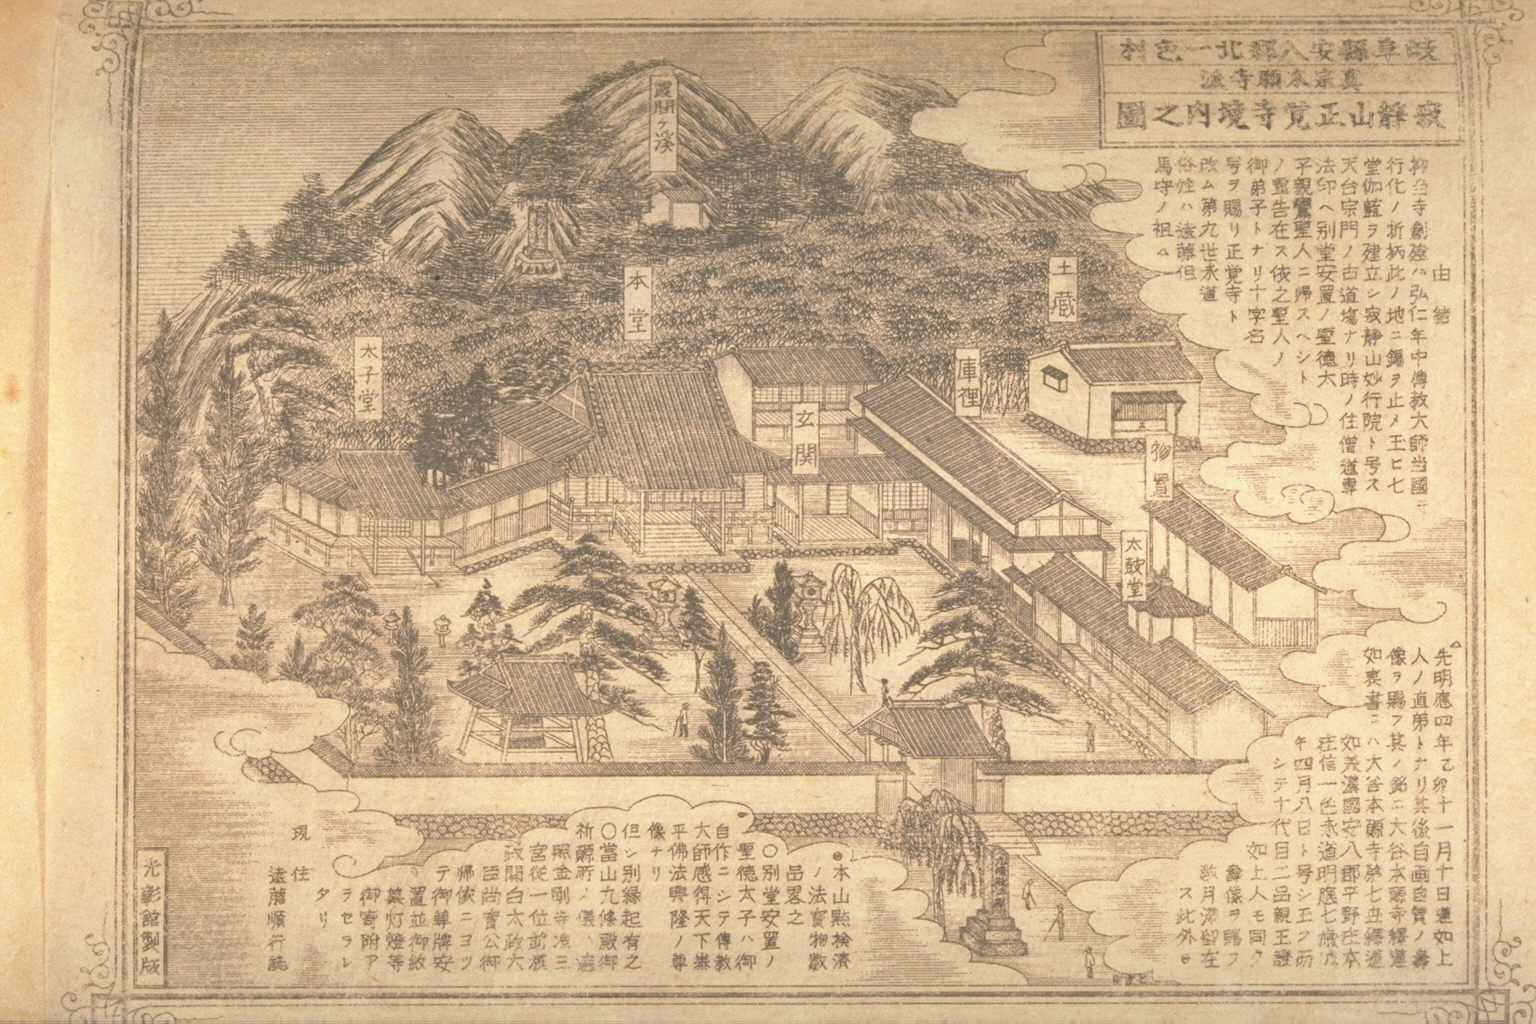 岐阜縣安八郡北一色村
真宗本願寺派
寂靜山正覚寺境内之圖
由緒
抑当寺創建ハ弘仁年中傳教大師当國ニ
行化ノ折柄此ノ地ニ錫ヲ止メ玉ヒ七
堂伽藍ヲ建立シ寂静山妙行院ト号ス
天台宗門ノ古道場ナリ時ノ住僧道専
法印ヘ別堂安置ノ聖德太
子親鸞聖人ニ帰スヘシト
ノ霊告在ス依之聖人ノ
御弟子トナリ十字名
号ヲ賜リ正覚寺ト
改ム第九世永道
俗姓ハ遠藤但
馬守ノ祖
先明應四年乙卯十一月十日蓮如上
人ノ直弟トナリ其後自画自賛ノ壽
像ヲ賜フ其ノ銘ニ大谷本願寺釋蓮
如裏書ニハ大谷本願寺第七世釋蓮
如美濃國安八郡平野庄本
庄信一色永道明應七歳戊
午四月八日ト号シ玉フ而
シテ十代目二品親王證
如上人モ同ク
壽像ヲ賜フ
数月滞留在
ス此外
本山點検濟
ノ法宝物数
品畧之
〇別堂安置ノ
聖德太子ハ御
自作ニシテ傳教
大師感得天下泰
平佛法興隆ノ尊
像ナリ
但シ別縁起有之
〇當山九條殿御
祈願所ノ儀ハ
照金剛寺准三
宮従一位前
政関白太政大
臣尚實公御
帰依ニヨツ
テ御尊牌安
置並御紋
築灯燈等
御寄附ア
ラセラレ
タリ
現住
遠藤順行誌
光彰館製版
霞間ヶ溪
本堂
太子堂
玄関
庫裡
土蔵
物置
太鼓堂